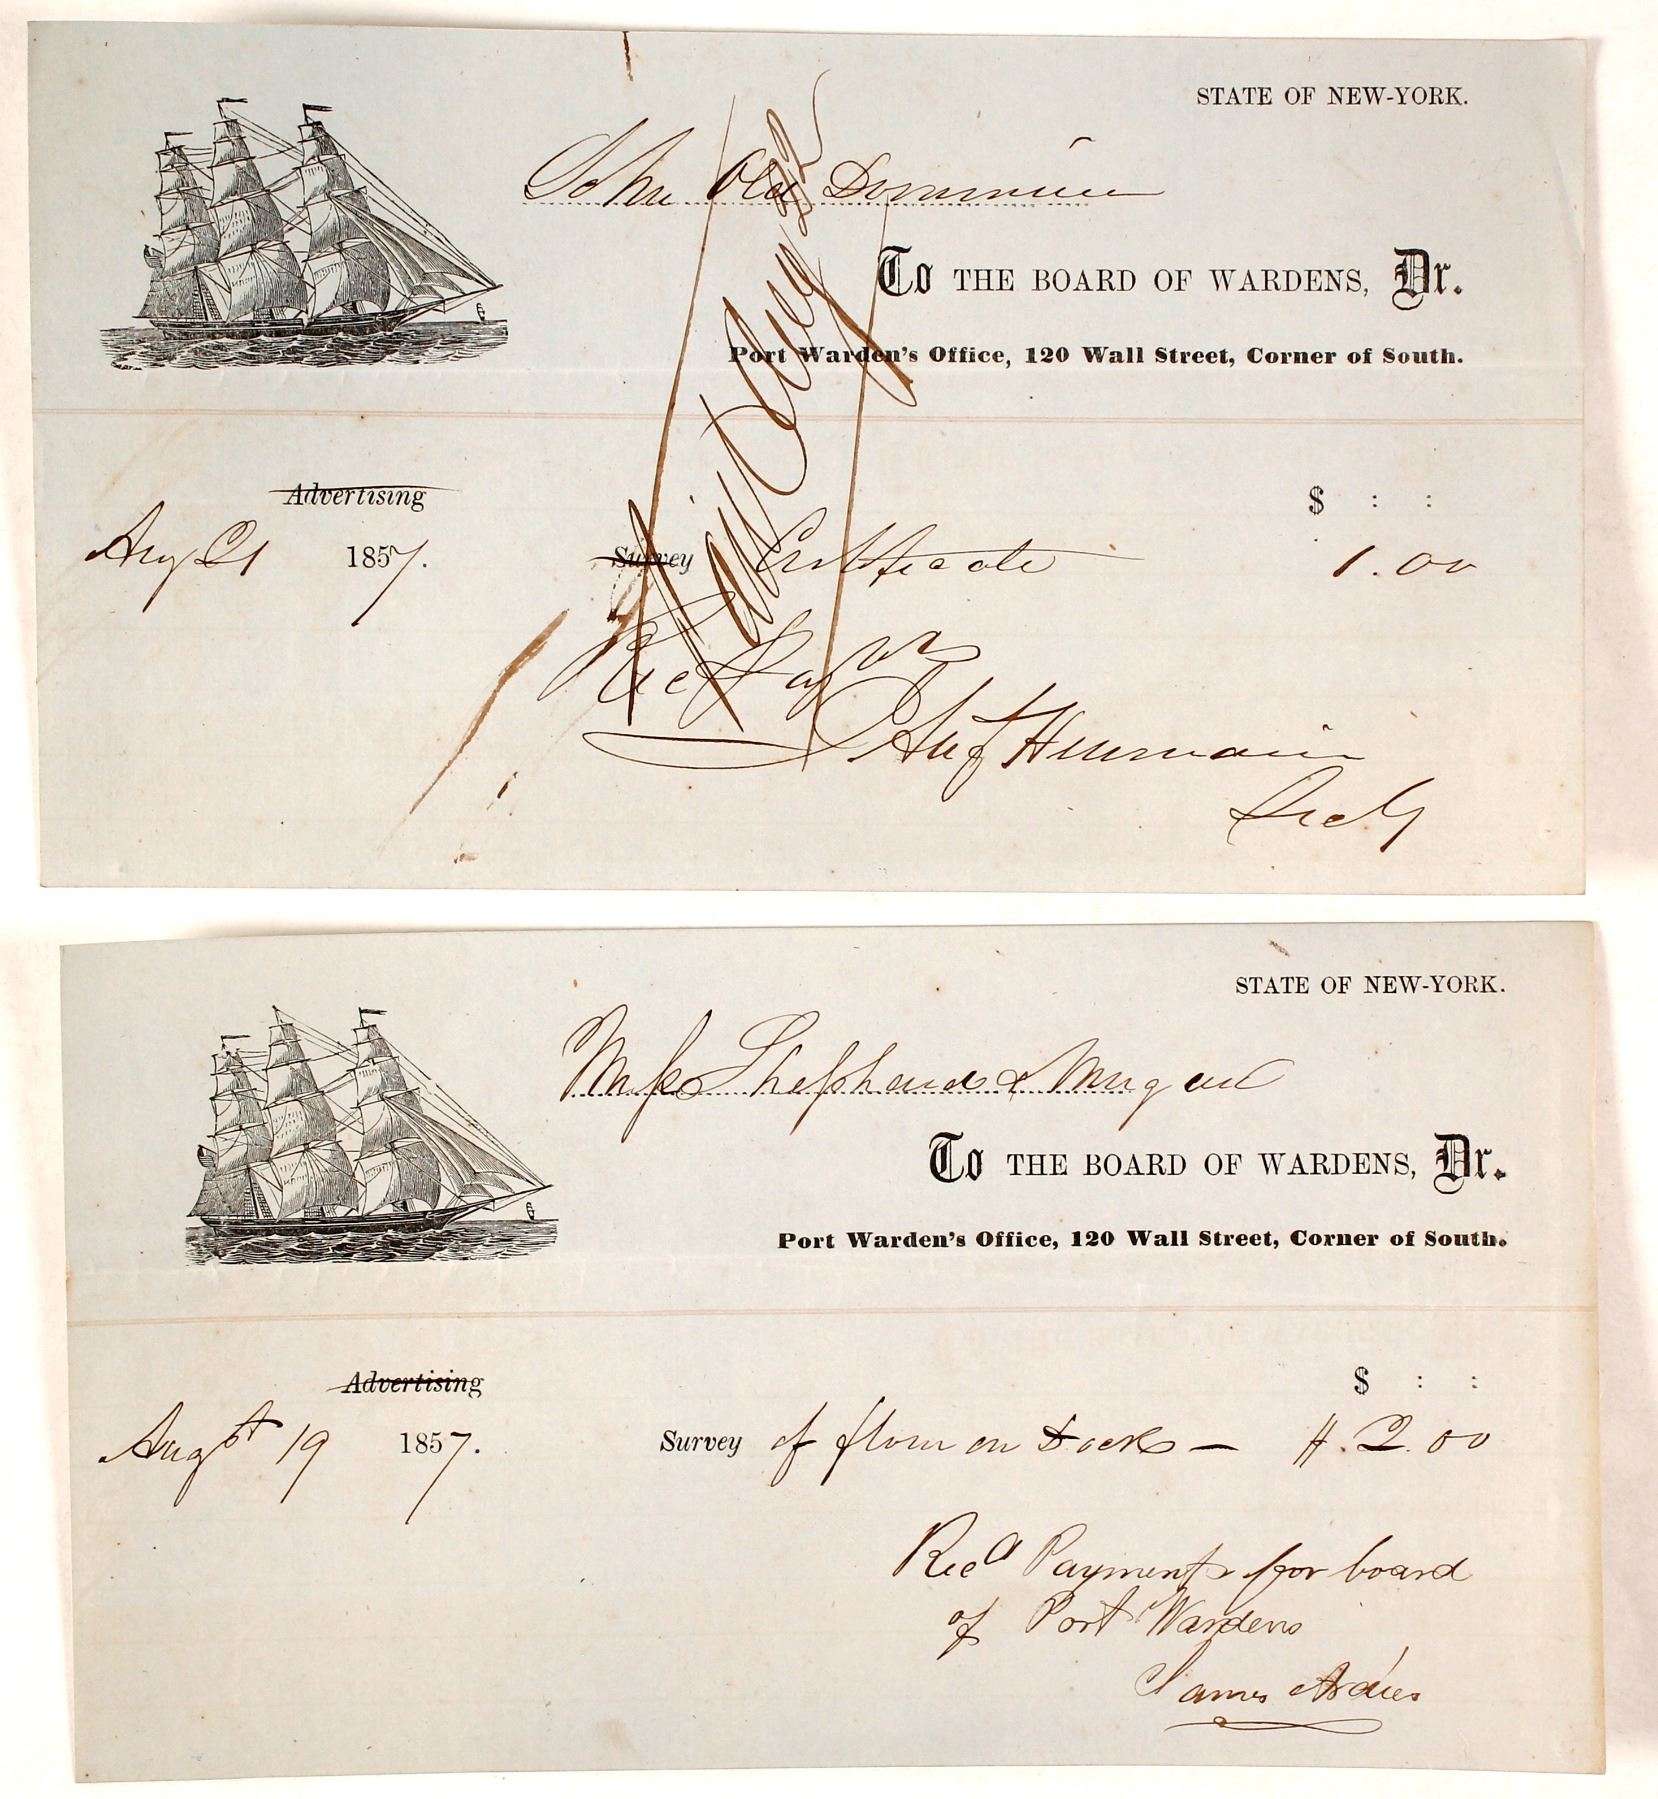 STATE OF NEW-YORK.
Old
To THE BOARD OF WARDENS, Dr.
Port Warden's Office, 120 Wall Street, Corner of South.
Advertising
$ : :
Aug 21 1857.
Survey Certificate 1.00
Rec Pay
Secy
Paid Aug 22
STATE OF NEW-YORK.
Shepherd &
To THE BOARD OF WARDENS, Dr.
Port Warden's Office, 120 Wall Street, Corner of South.
Advertising
$ : :
Augst 19 1857.
Survey of flour on Dock — $. 2.00
Recd Payment for board
of Port Wardens
James